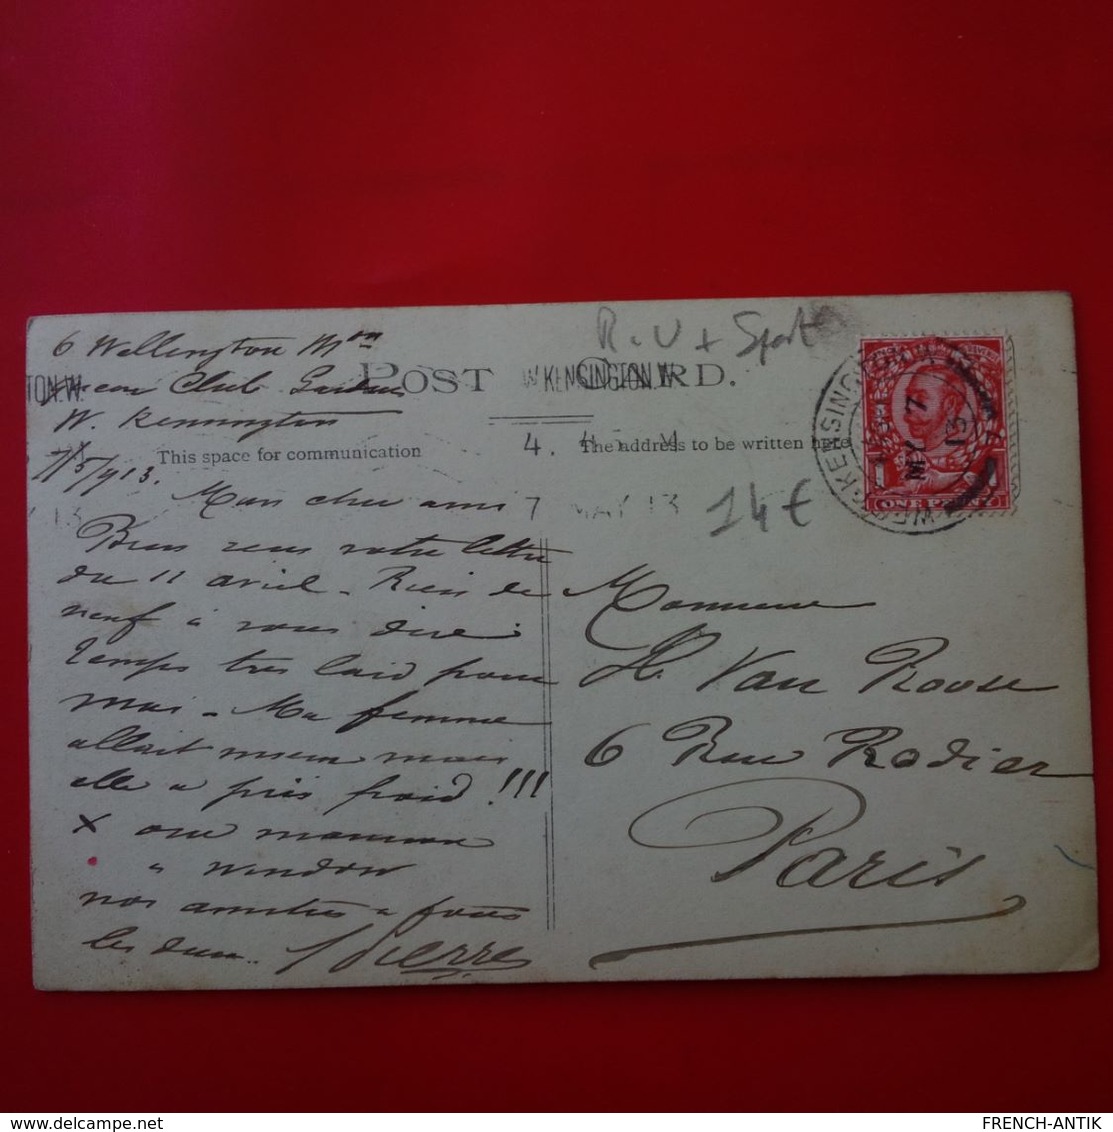 6 Wellington Mon
Queens Club Gardens
W. Kensington
7/5/1913.
POST CARD.
TON.W.
W.KENSINGTON.W
This space for communication
The address to be written here
4. 45 M
7 MAY 13
13
R.U + Sport
14 €
W. KENSINGTON
MY 7
13
1
ONE PENNY
Mon cher ami
Bien reçu votre lettre
du 11 avril. Rien de
neuf à vous dire
temps très laid pour
mai. Ma femme
allait mieux mais
elle a pris froid !!!
X our
" window
nos amitiés à tous
les deux. Pierre
Monsieur
H. Van Roose
6 Rue Rodier
Paris
FRENCH-ANTIK